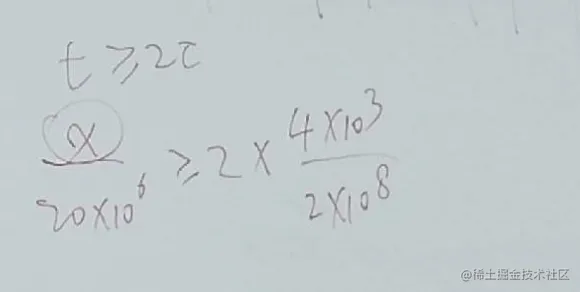 t ≥ 2τ
x / 20×10^6 ≥ 2 × 4×10^3 / 2×10^8
@稀土掘金技术社区